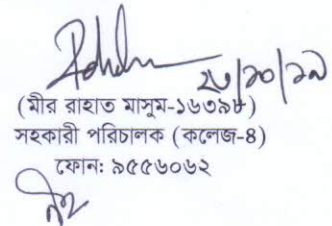 ২৩/১০/১৯
(মীর রাহাত মাসুম-১৬৩৯৮)
সহকারী পরিচালক (কলেজ-৪)
ফোন: ৯৫৫৬০৬২